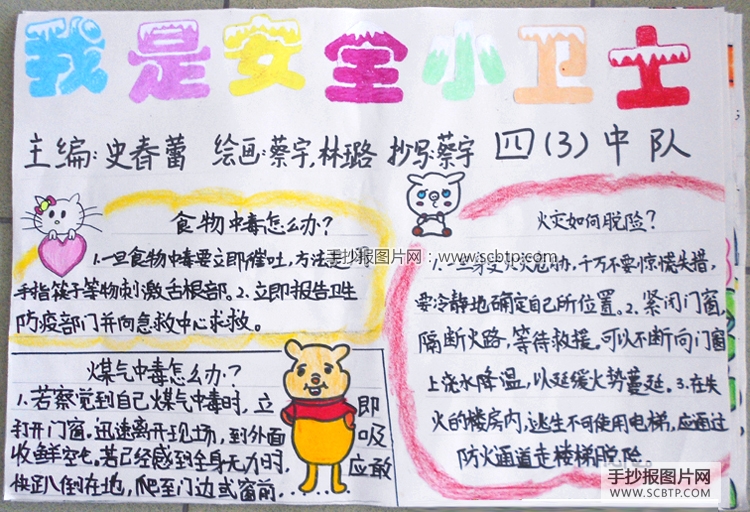 我是安全小卫士
主编:史春蕾 绘画:蔡宇,林璐 抄写:蔡宇 四(3)中队
食物中毒怎么办?
1.一旦食物中毒要立即催吐,方法是
手指筷子等物刺激舌根部。2.立即报告卫生
防疫部门并向急救中心求救。
煤气中毒怎么办?
1.若察觉到自己煤气中毒时,立即
打开门窗。迅速离开现场,到外面吸
收鲜空气。若已经感到全身无力时,应敢
快趴倒在地,爬至门边或窗前......
火灾如何脱险?
1.一旦身受火灾危胁,千万不要惊慌失措,
要冷静地确定自己所位置。2.紧闭门窗,
隔断火路,等待救援。可以不断向门窗
上浇水降温,以延缓火势蔓延。3.在失
火的楼房内,逃生不可使用电梯,应通过
防火通道走楼梯脱险。
手抄报图片网:www.scbtp.com
手抄报图片网
WWW.SCBTP.COM